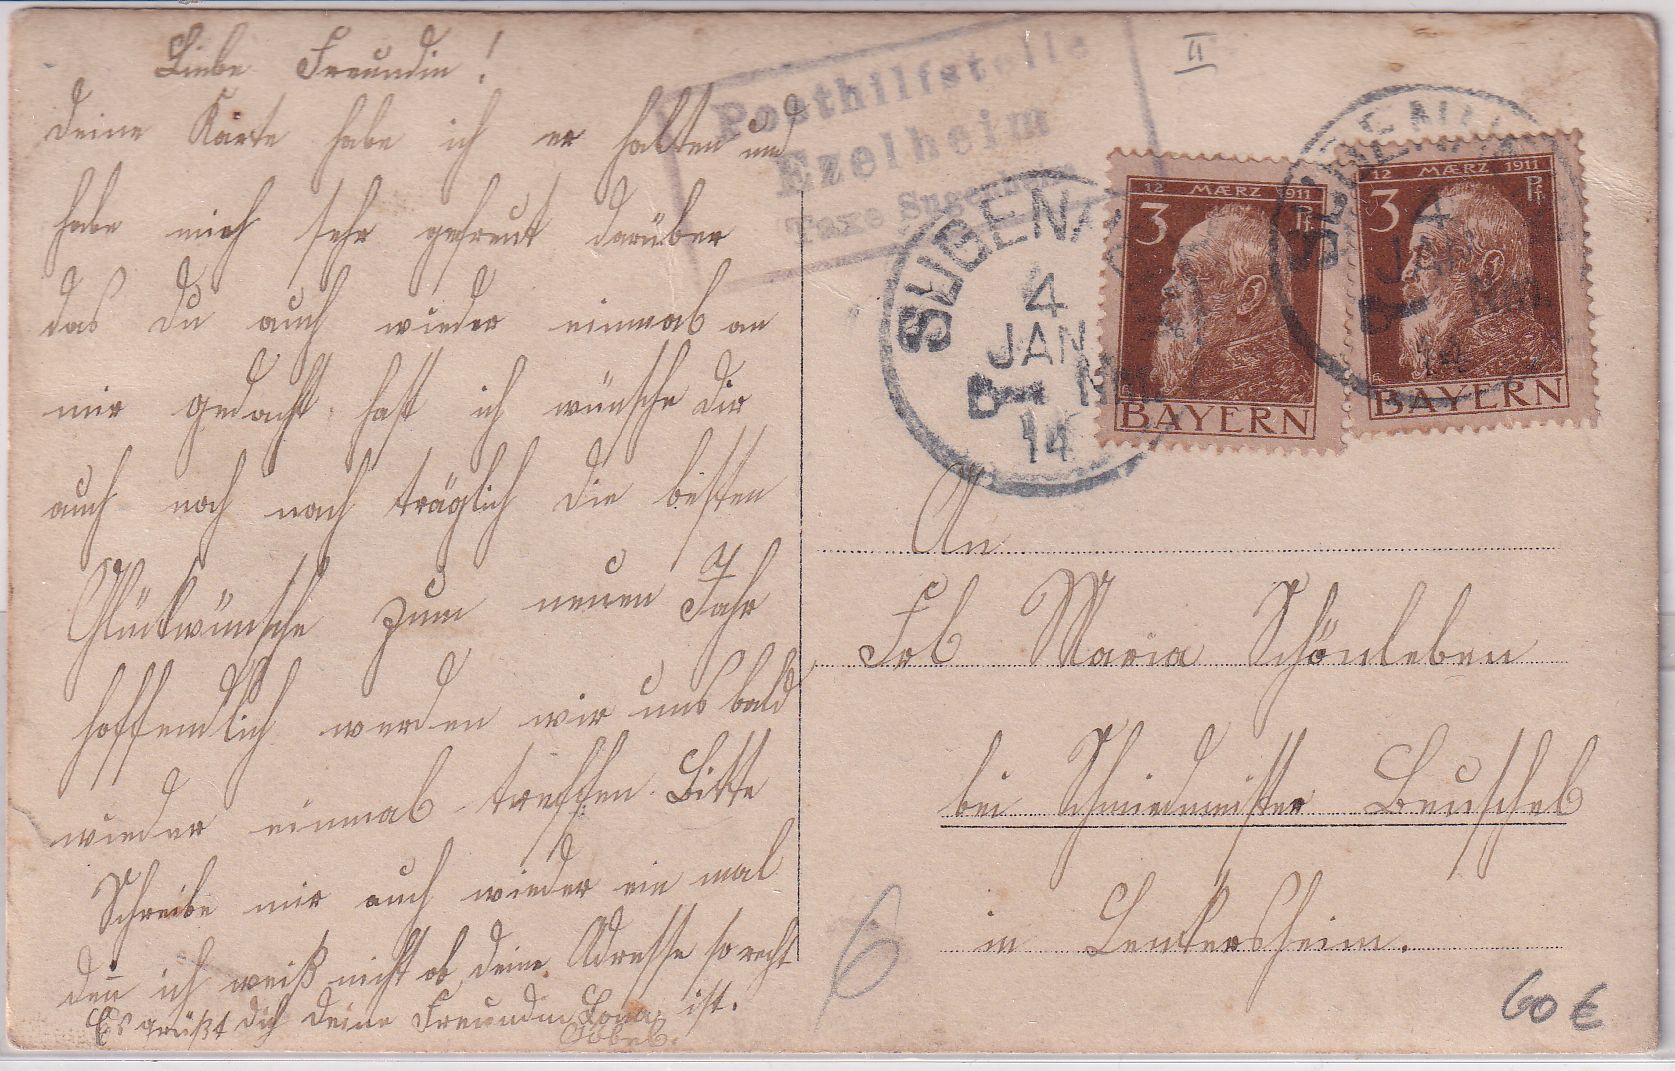 Liebe Freundin!
deine Karte habe ich er halten und
habe mich sehr gefreut darüber
das du auch wieder einmal an
mir gedacht hast ich wünsche dir
auch noch nach träglich die besten
Glückwünsche zum neuen Jahr
hoffendlich werden wir uns bald
wieder einmal treffen. Bitte
Schreibe mir auch wieder ein mal
den̄ ich weiß nicht ob deine Adresse so recht
ist.
Es grüßt dich deine Freundin
Posthilfstelle
Ezelheim
Taxe Sugenheim
II
SUGENH
4
JAN
Nm.
14
12 MÆRZ 1911
3 Pf
BAYERN
SUGENH
4
JAN
Nm.
14
12 MÆRZ 1911
3 Pf
BAYERN
An
Frl Maria Schönleben
bei Schmiedmeister Beuschel
in Lenkersheim.
6
60 €